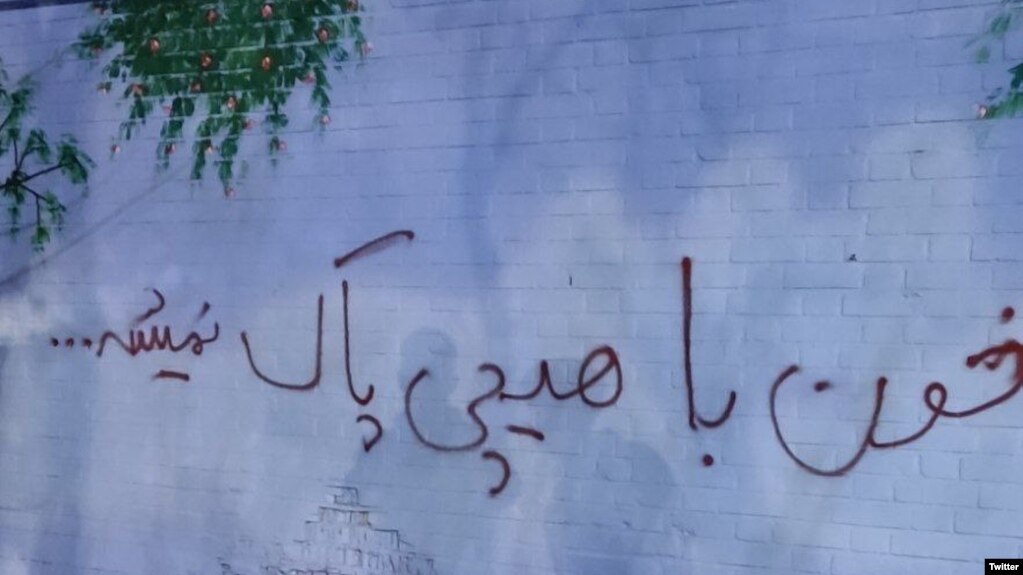 خون با هیچی پاک نمیشه...
Twitter